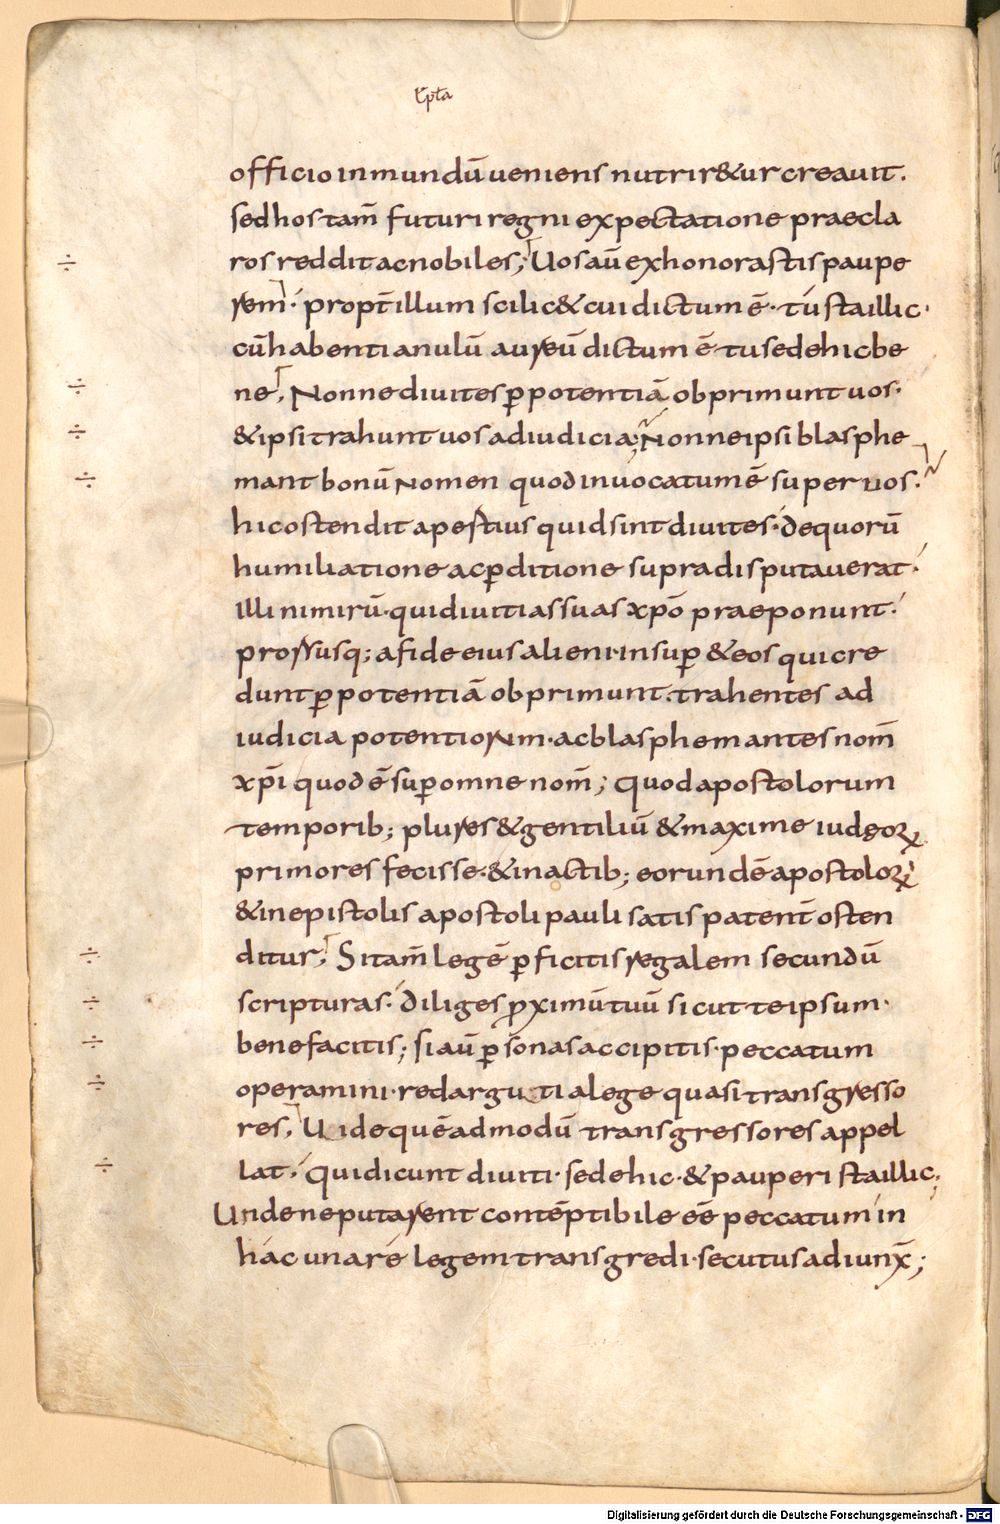 Epła
officio in mundū ueniens nutrir&ur creauit.
sed hos tam̄ futuri regni expectatione praecla
ros reddit ac nobiles; Uos aū exhonorastis paupe
rem. propt̄ illum scilic& cui dictum ē. tu sta illic.
cū habenti anulū aureū dictum ē tu sede hic be
ne; Nonne diuites ꝑ potentiā obprimunt uos.
& ipsi trahunt uos ad iudicia; Nonne ipsi blasphe
mant bonū nomen quod inuocatum ē super uos.
hic ostendit apestius qui d sint diuites. de quorū
humiliatione ac ꝑditione supra disputauerat.
illi nimirū. qui diuitias suas xp̄o praeponunt.
prorsusq; a fide eius alieni. insuꝑ & eos qui cre
dunt ꝑ potentiā obprimunt. trahentes ad
iudicia potentiorum. ac blasphemantes nom̄
xp̄i quod ē suꝑ omne nom̄; quod apostolorum
temporib; plures & gentiliū & maxime iudęoꝝ
primores fecisse. & in actib; eorundē apostoloꝝ
& in epistolis apostoli pauli satis patent̄ osten
ditur; Si tam̄ legē ꝑficitis regalem secundū
scripturas. diliges ꝓximū tuū sicut te ipsum.
benefacitis; si aū ꝑsonas accipitis. peccatum
operamini. redarguti a lege quasi transgresso
res; Uide quēadmodū transgressores appel
lat. qui dicunt diuiti. sede hic. & pauperi sta illic;
Unde ne putarent contēptibile eē peccatum in
hac una re legem transgredi. secutus adiunx̄;
Digitalisierung gefördert durch die Deutsche Forschungsgemeinschaft - DFG